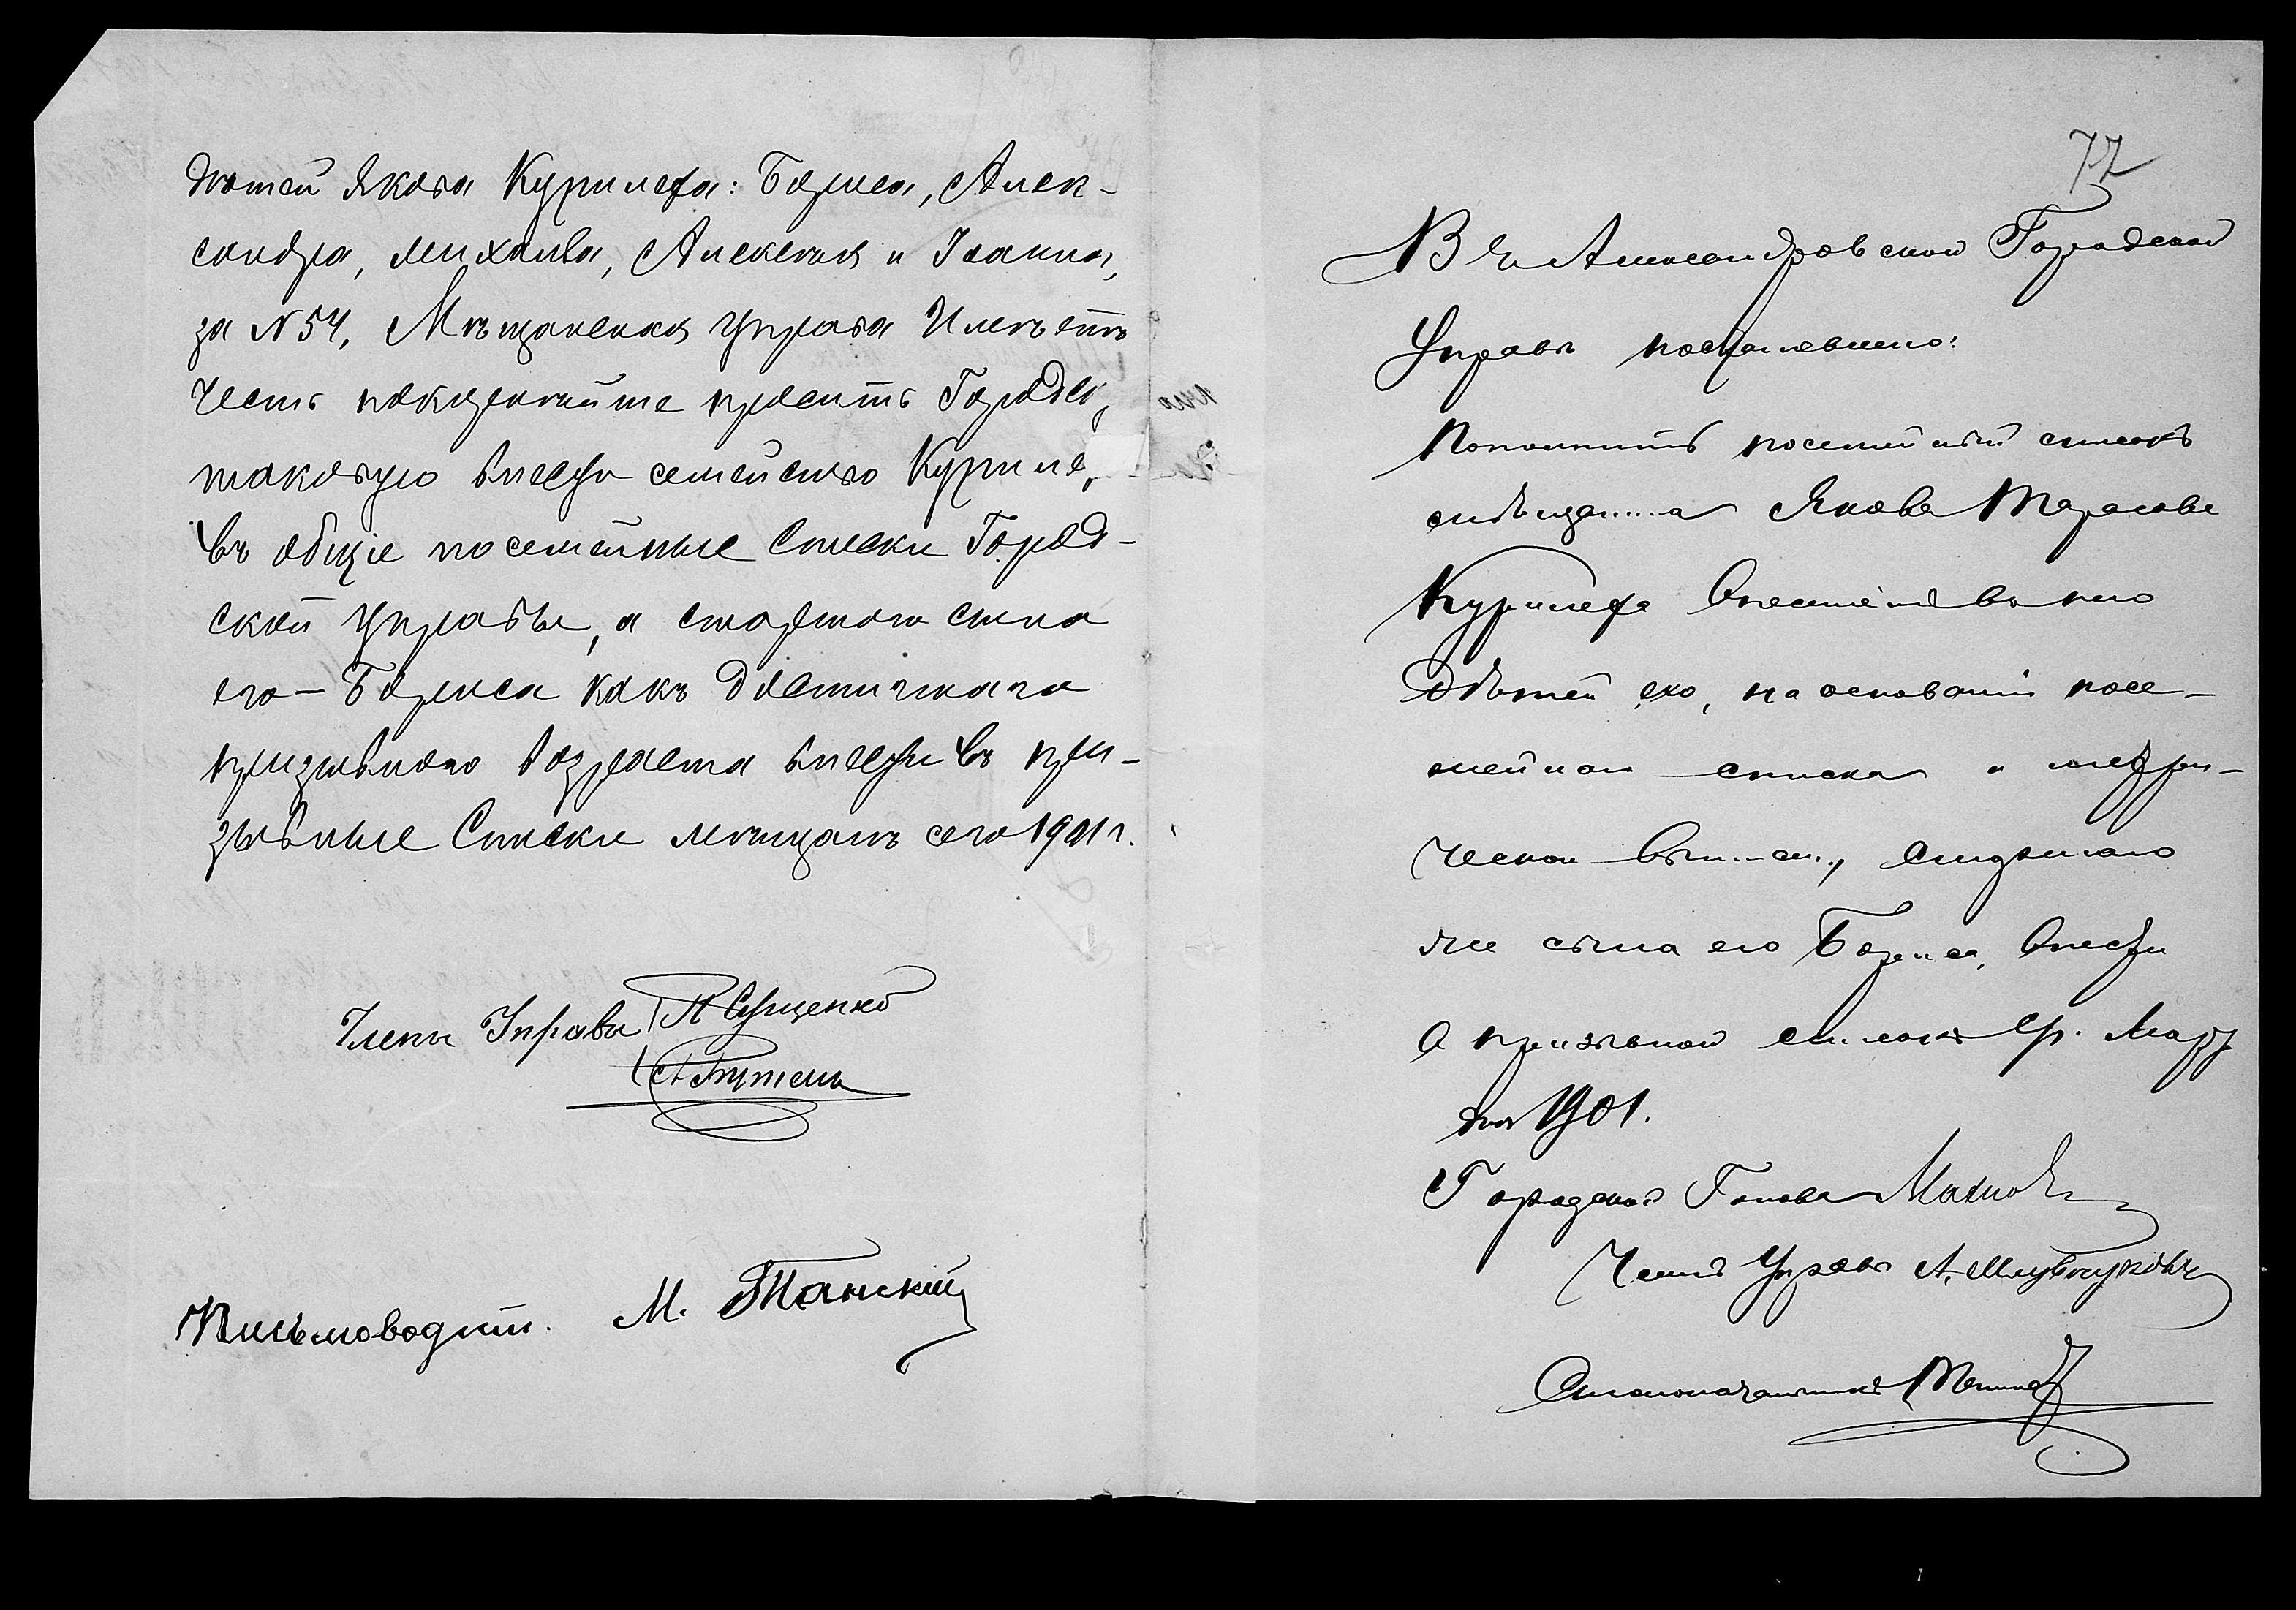 дѣтей Якова Куриленка: Бориса, Алек-
сандра, Михаила, Алексѣя и Іоанна,
за № 54, Мѣщанская Управа Имѣетъ
Честь покорнѣйше просить Городск.
таковую внести семейство Куриле.
въ общіе посемейные Списки Город-
ской Управы, а старшаго сына
его – Бориса какъ достигшаго
призывного возраста внести въ при-
зывные Списки мѣщанъ сего 1901 г.
Члены Управы
Письмоводит. М. Танскій
77
Въ Александровской Городской
Управѣ постановлено:
Пополнить посемейный списокъ
мѣщанина Якова Тарасова
внесеніемъ въ него
дѣтей его, на основаніи посе-
мейнаго списка и метри-
ческой выписи, старшаго
же сына его Бориса, внести
въ призывной списокъ
1901.
Городской Голова Махно
Членъ Управы А.
Столоначальникъ